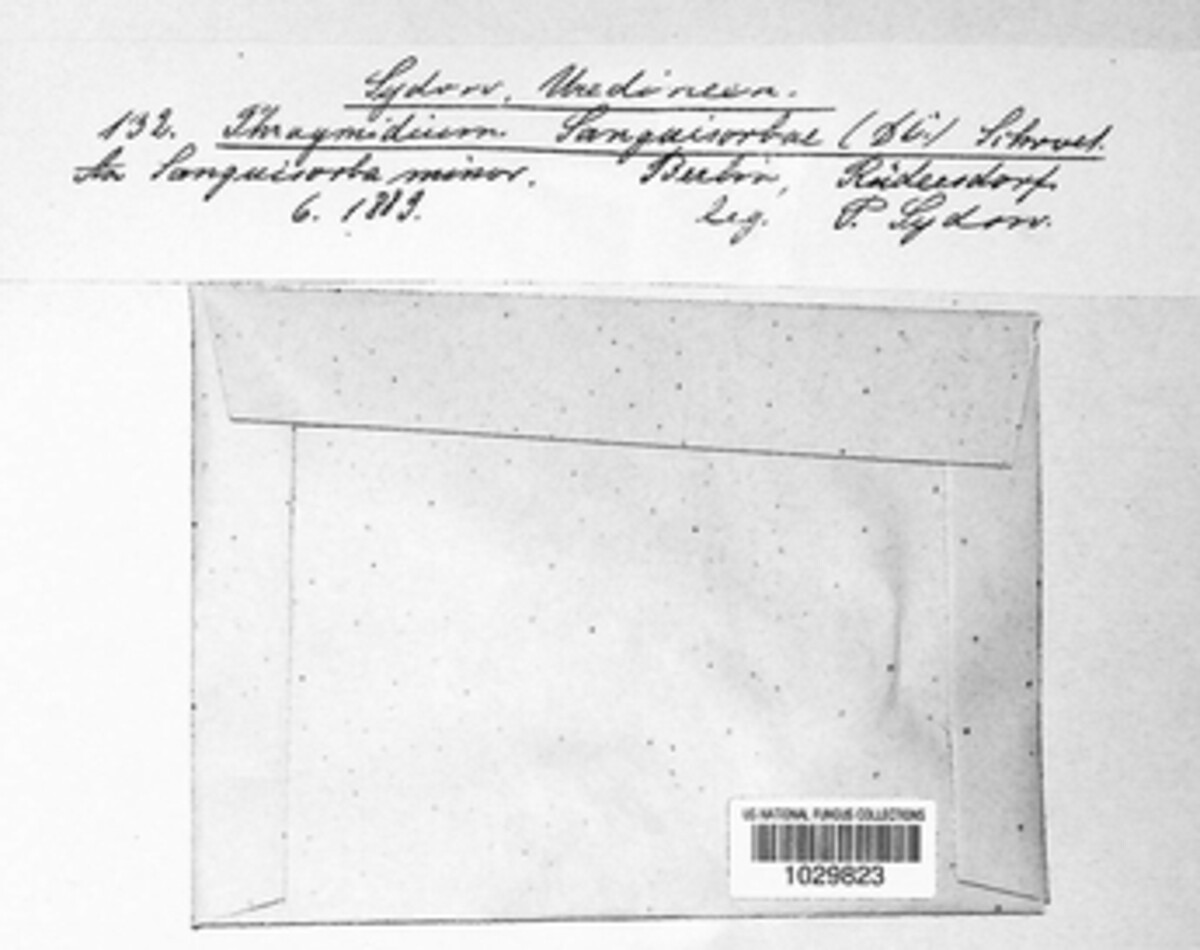 Sydow, Uredineen.
132. Phragmidium Sanguisorbae (DC.) Schroet.
An Sanguisorba minor. Berlin, Rüdersdorf.
6. 1889. leg. P. Sydow.
US NATIONAL FUNGUS COLLECTIONS
1029823